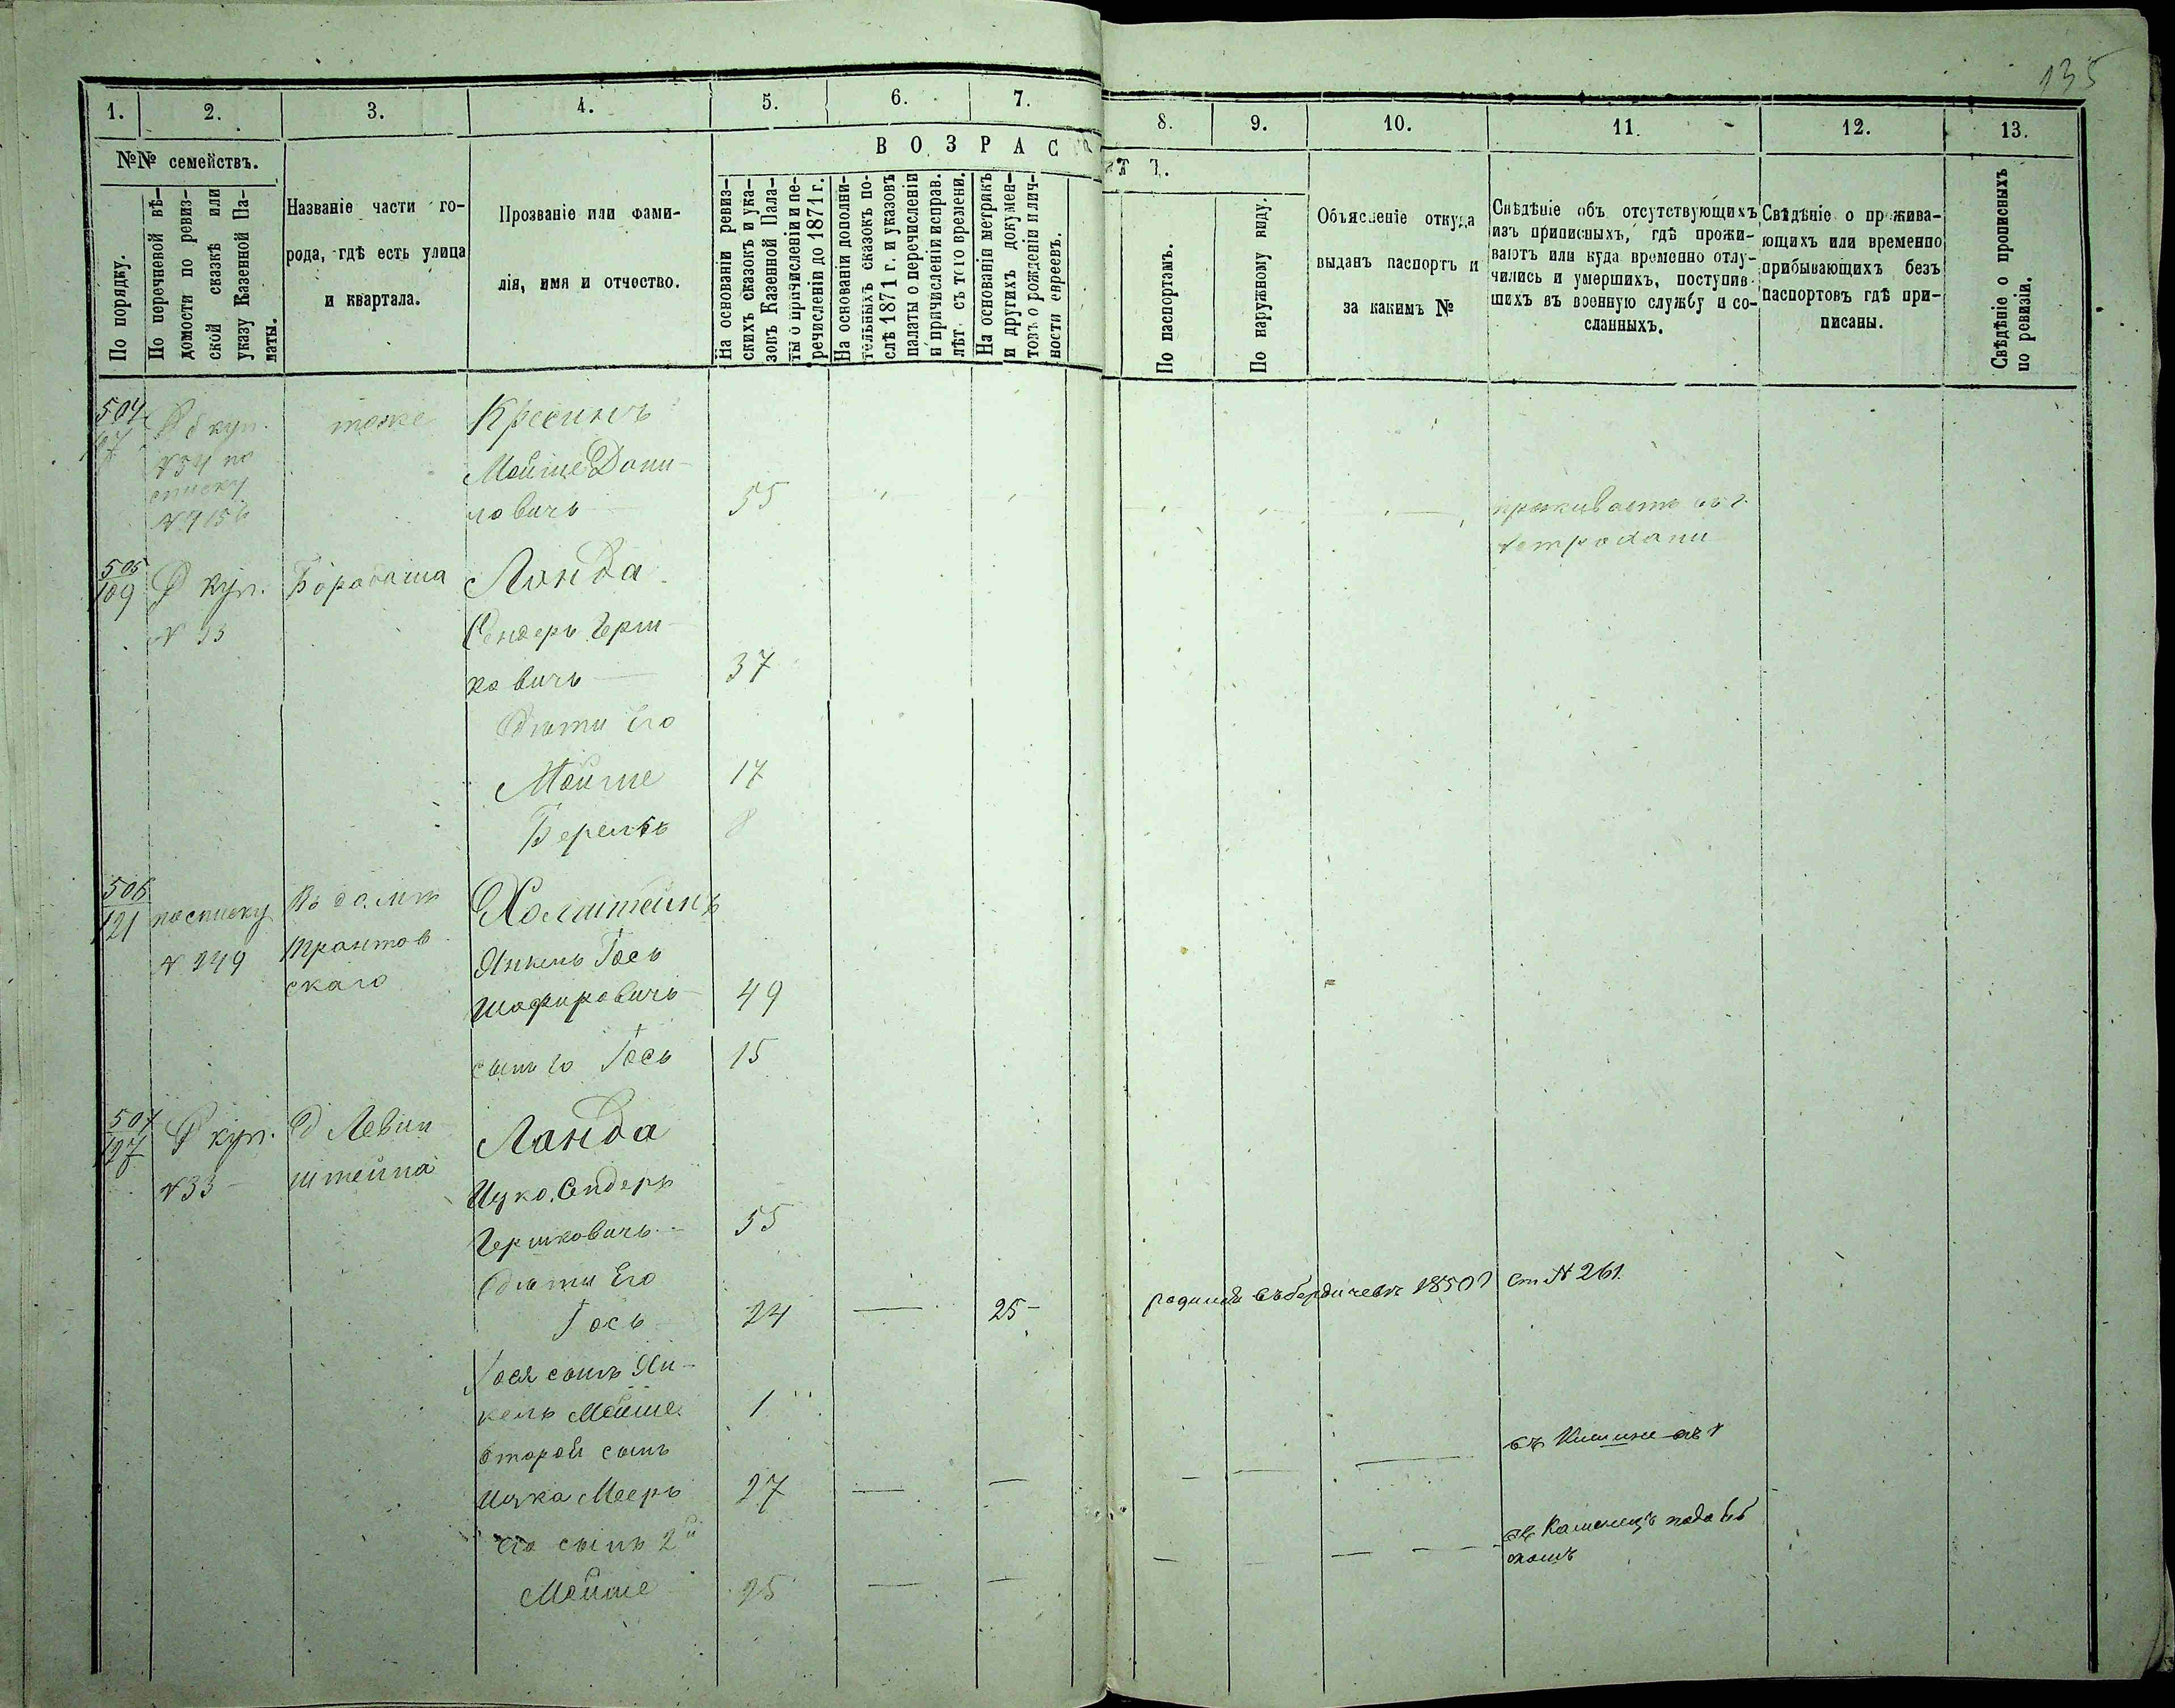 135
1. 2. 3. 4. 5. 6. 7. 8. 9. 10. 11. 12. 13.
№№ семействъ.
По порядку.
По перечневой вѣ-
домости по ревиз-
ской сказкѣ или
указу Казенной Па-
латы.
Названіе части го-
рода, гдѣ есть улица
и квартала.
Прозваніе или фами-
лія, имя и отчество.
ВОЗРАС
ТЪ.
На основаніи ревиз-
скихъ сказокъ и ука-
зовъ Казенной Пала-
ты о причисленіи и пе-
речисленіи до 1871 г.
На основаніи дополни-
тельныхъ сказокъ по-
слѣ 1871 г. и указовъ
палаты о перечисленіи
и причисленіи исправ.
лѣт съ того времени.
На основаніи метрикъ
и другихъ докумен-
товъ о рожденіи и лич-
ности евреевъ.
По паспортамъ.
По наружному виду.
Объясненіе откуда
выданъ паспортъ и
за какимъ №
Свѣдѣніе объ отсутствующихъ
изъ приписныхъ, гдѣ прожи-
ваютъ или куда временно отлу-
чились и умершихъ, поступив-
шихъ въ военную службу и со-
сланныхъ.
Свѣдѣніе о прожива-
ющихъ или временно
прибывающихъ безъ
паспортовъ гдѣ при-
писаны.
Свѣдѣніе о прописныхъ
по ревизіи.
504
67 куп. тоже
Мойше Дани-
ловичь 55 проживаетъ въ г.
505
109 куп. Ланда
№ 33 Сендеръ Герш-
ковичь 37
Дѣти Его
Мойше 17
Берель 8
506
121 по списку Въ домѣ Холштейнъ
№ 249 скаго Янкель Іось
Шафировичь 49
сынъ его Іось 15
507
127 куп. Д Левин Ланда
№ 33 штейна Ицко Сендеръ
Гершковичь 55
Дѣти Его
Іось 24 — 25 родился въ Бердичевѣ 1850 г Ст № 261.
Іося сынъ Ян-
кель Мойше 1
второй сынъ въ Кишиневѣ
Ицка Мееръ 27 — —
его сынъ 2й въ Каменецъ подоль
Мойше 25 — — скомъ